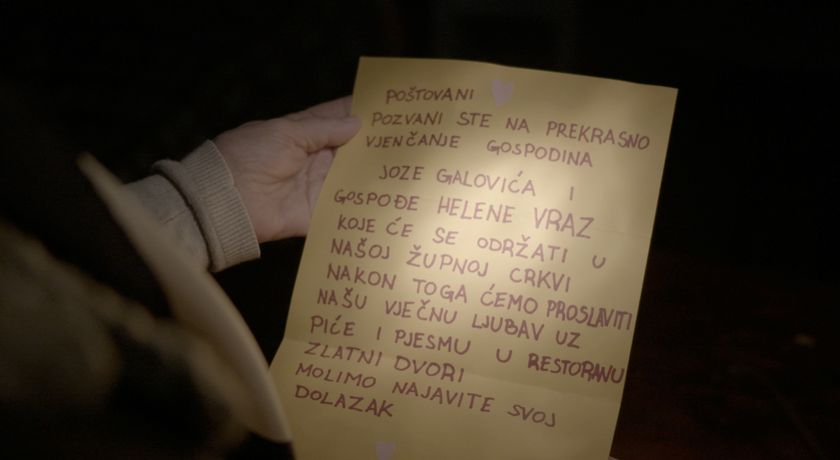 POŠTOVANI
POZVANI STE NA PREKRASNO
VJENČANJE GOSPODINA
JOZE GALOVIĆA I
GOSPOĐE HELENE VRAZ
KOJE ĆE SE ODRŽATI U
NAŠOJ ŽUPNOJ CRKVI
NAKON TOGA ĆEMO PROSLAVITI
NAŠU VJEČNU LJUBAV UZ
PIĆE I PJESMU U RESTORANU
ZLATNI DVORI
MOLIMO NAJAVITE SVOJ
DOLAZAK